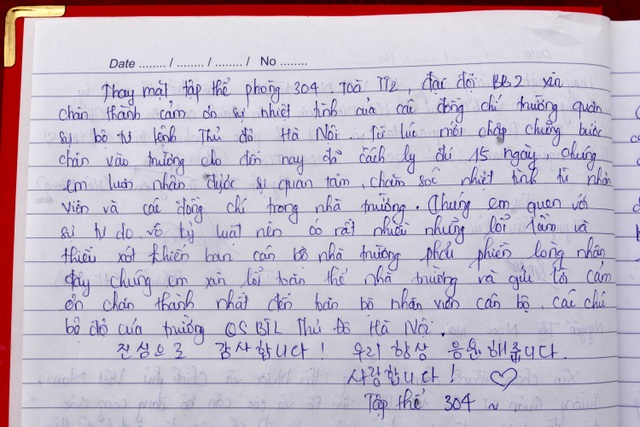 Date ......... / ......... / ......... / No .........
Thay mặt tập thể phòng 304, Toà T12, đại đội BB2 xin
chân thành cảm ơn sự nhiệt tình của các đồng chí trường quân
sự bộ tư lệnh Thủ đô Hà Nội. Từ lúc mới chập chững bước
chân vào trường cho đến nay đã cách ly đủ 15 ngày, chúng
em luôn nhận được sự quan tâm, chăm sóc nhiệt tình từ nhân
viên và các đồng chí trong nhà trường. Chúng em quen với
sự tự do, vô kỷ luật nên có rất nhiều những lỗi lầm và
thiếu xót khiến ban cán bộ nhà trường phải phiền lòng nhân
đây chúng em xin lỗi toàn thể nhà trường và gửi lời cảm
ơn chân thành nhất đến toàn bộ nhân viên cán bộ, các chú
bộ đội của trường QS BTL Thủ Đô Hà Nội.
진심으로 감사합니다! 우리 항상 응원해줍니다.
사랑합니다! ♡
Tập thể 304 ~